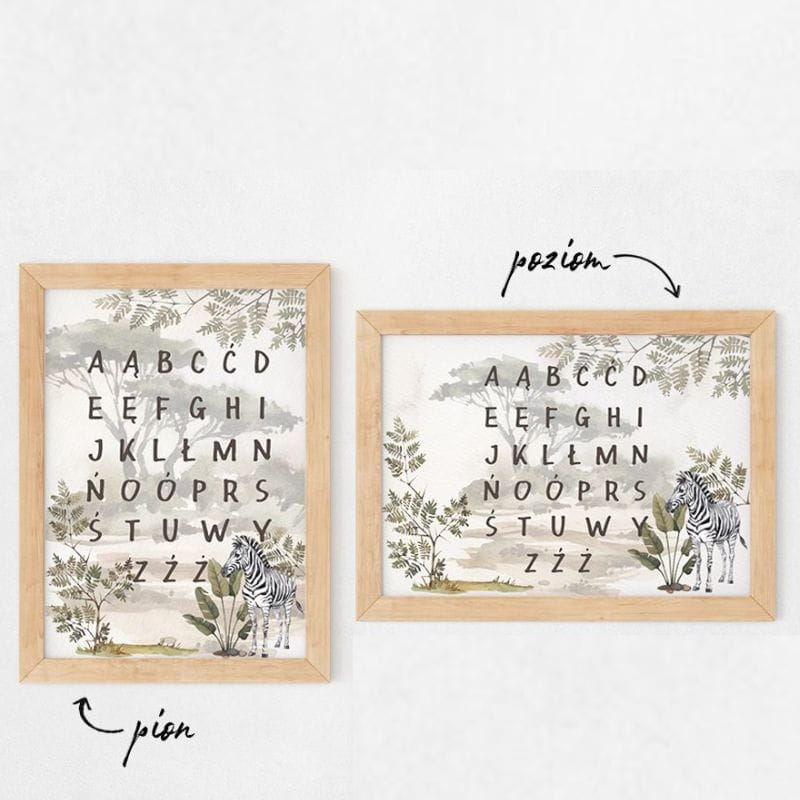 poziom
A Ą B C Ć D
E Ę F G H I
J K L Ł M N
Ń O Ó P R S
Ś T U W Y
Z Ź Ż
A Ą B C Ć D
E Ę F G H I
J K L Ł M N
Ń O Ó P R S
Ś T U W Y
Z Ź Ż
pion